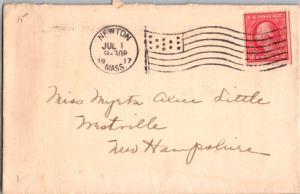 15
NEWTON
JUL 1
8-30P
19 17
MASS.
U.S. POSTAGE
Miss Myrta Alice Little
Westville
New Hampshire